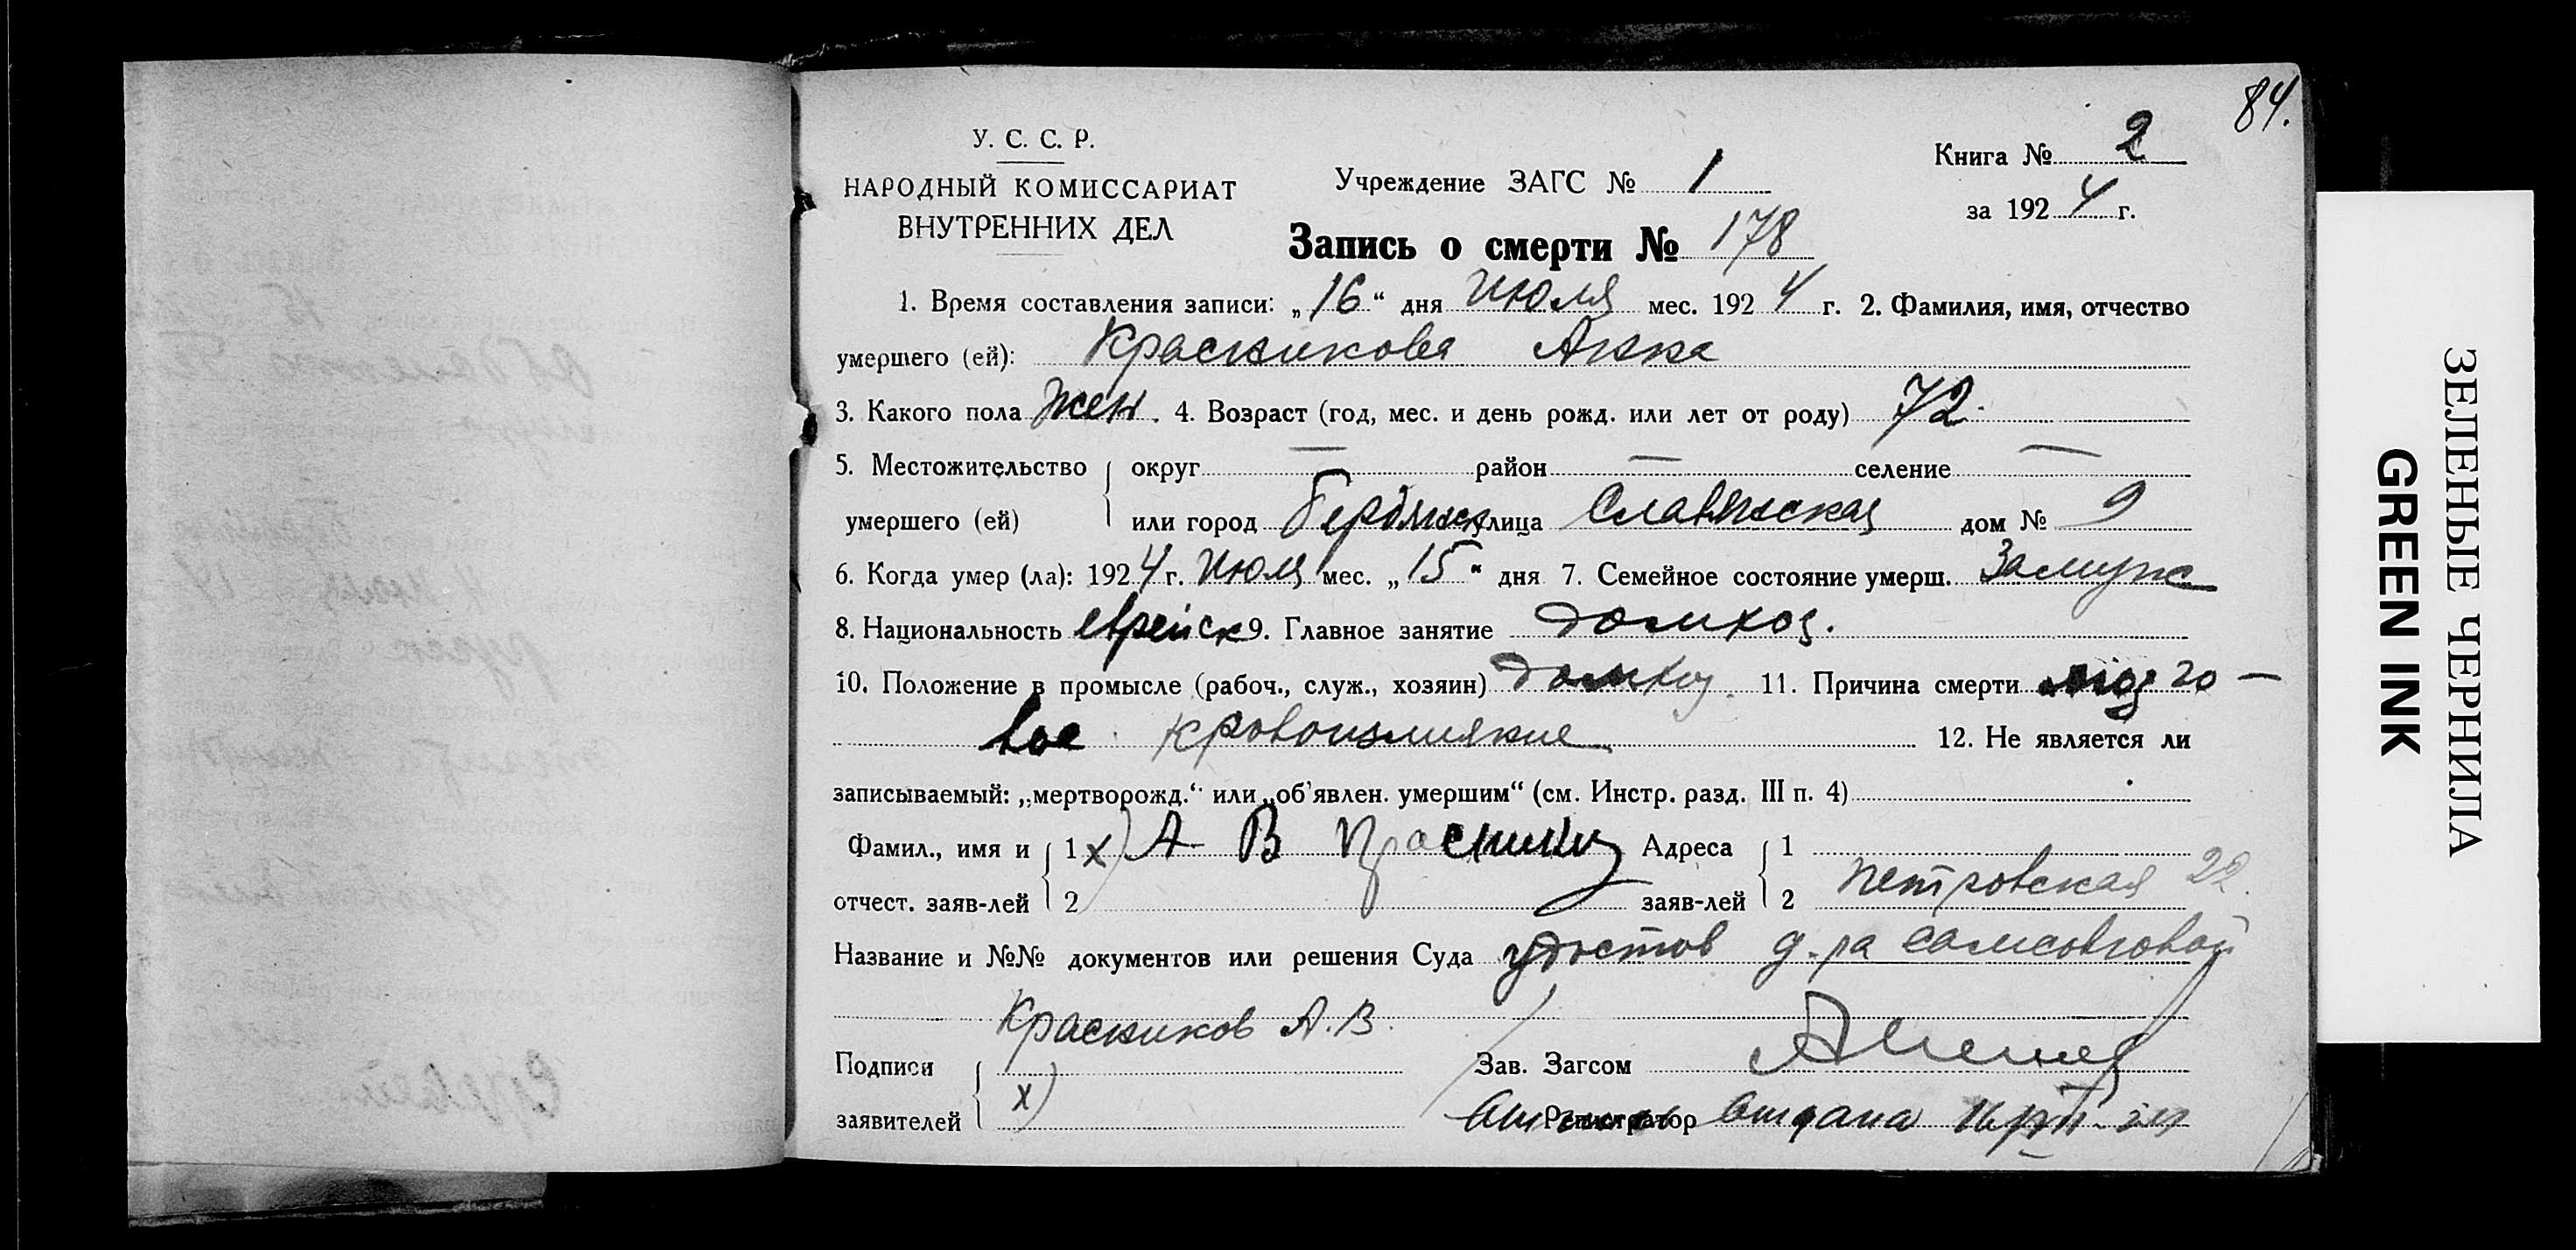 84.
У. С. С. Р.
НАРОДНЫЙ КОМИССАРИАТ
ВНУТРЕННИХ ДЕЛ
Учреждение ЗАГС № 1
Книга № 2
за 1924 г.
Запись о смерти № 178
1. Время составления записи: „16“ дня Июля мес. 1924 г. 2. Фамилия, имя, отчество
умершего (ей): Красникова Анна
3. Какого пола жен. 4. Возраст (год, мес. и день рожд. или лет от роду) 72
5. Местожительство округ — район — селение —
умершего (ей) или город Бердянск улица Славянская дом № 9
6. Когда умер (ла): 1924 г. Июля мес. „15“ дня 7. Семейное состояние умерш. Замуж
8. Национальность еврейск 9. Главное занятие домхоз.
10. Положение в промысле (рабоч., служ., хозяин) домхоз. 11. Причина смерти мозго—
вое кровоизлияние 12. Не является ли
записываемый: „мертворожд.“ или „об'явлен. умершим“ (см. Инстр. разд. III п. 4)
Фамил., имя и 1 х) А В Красников Адреса 1
отчест. заяв-лей 2 заяв-лей 2 Петровская 22.
Название и №№ документов или решения Суда удостов д-ра
Красников А. В.
Подписи Зав. Загсом
заявителей х) Регистратор
ЗЕЛЕНЫЕ ЧЕРНИЛА
GREEN INK